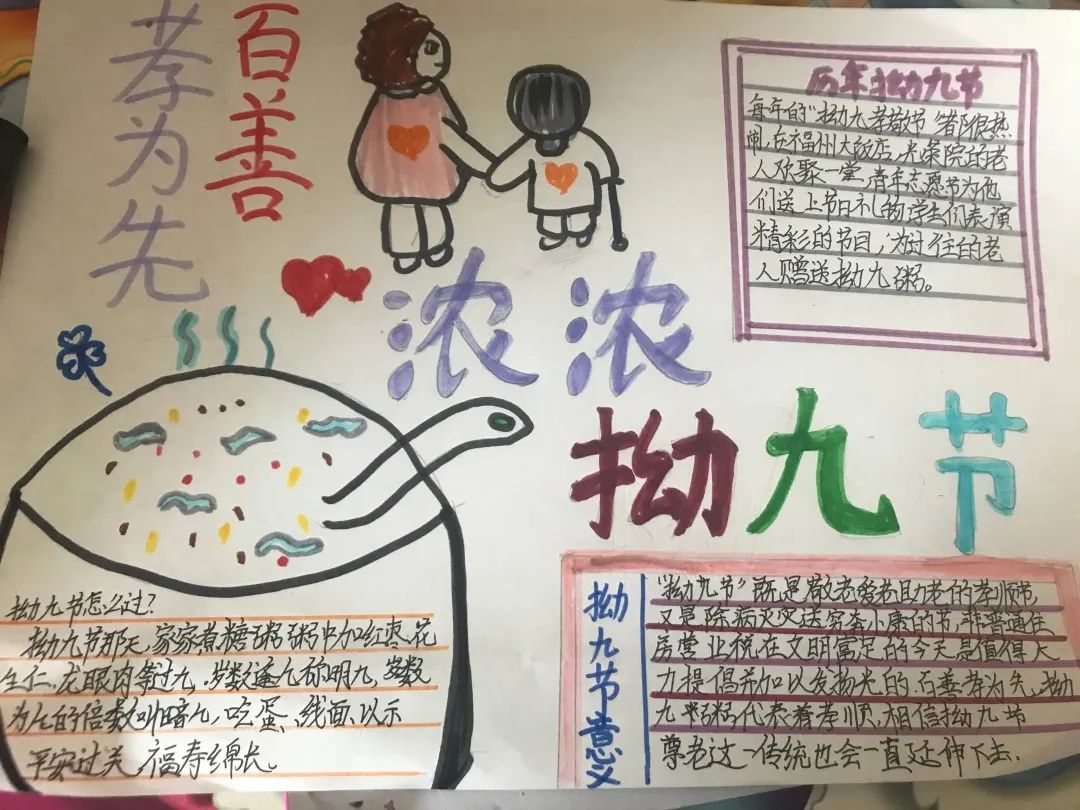 百善
孝为先
浓浓
拗九节
历年拗九节
每年的"拗九孝敬节"都很热
闹,在福州大饭店,光荣院的老
人欢聚一堂,青年志愿节为他
们送上节日礼物,学生们表演
精彩的节目,为过往的老
人赠送拗九粥。
拗九节怎么过?
拗九节那天,家家煮糖粥,粥中加红枣、花
生仁、龙眼肉等过九,岁数逢九称明九,岁数
为九的倍数叫暗九,吃蛋、线面、以示
平安过关,福寿绵长。
拗九节意义
"拗九节"既是敬老爱老助老的孝顺节,
又是除病灭灾送穷奔小康的节,
在文明富足的今天,是值得大
力提倡并加以发扬光的.百善孝为先,拗
九粥代表着孝顺,相信拗九节
尊老这一传统也会一直延伸下去.